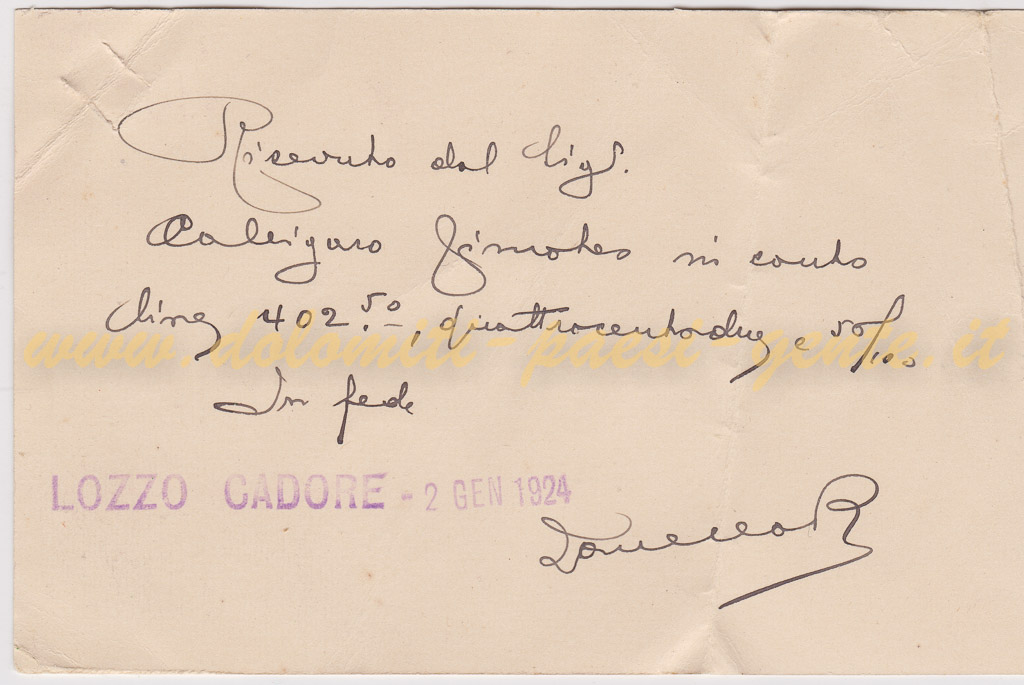 Ricevuto dal Sigr.
Calligaro Timoteo in conto
lire 402.50, quattrocentodue e 50/100
www.dolomiti-paesi-gente.it
In fede
LOZZO CADORE - 2 GEN 1924